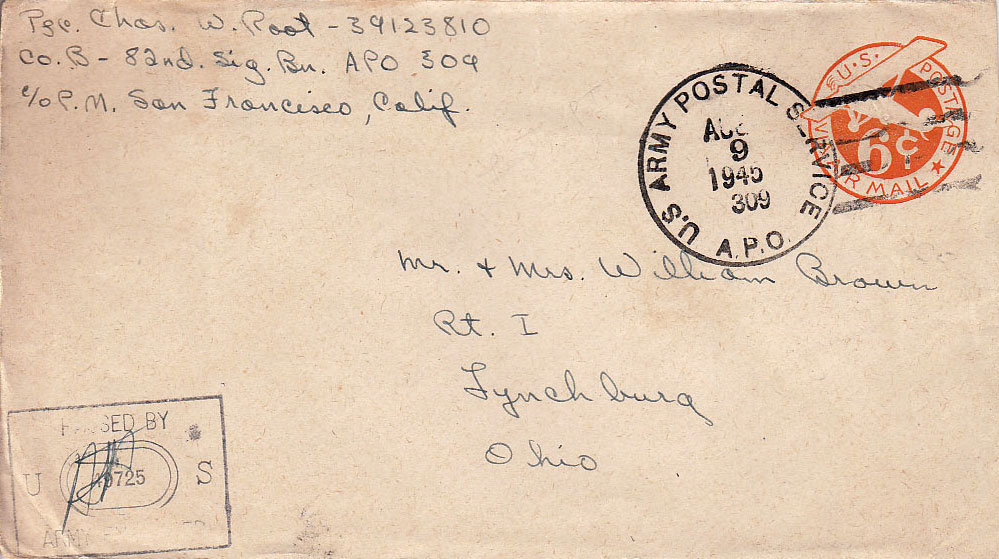 Pfc. Chas. W. Root - 39123810
Co. B - 82nd. Sig. Bn. APO 309
c/o P.M. San Francisco, Calif.
U.S ARMY POSTAL SERVICE
9
1945
309
A.P.O.
U.S. POSTAGE
6¢
AIR MAIL
Mr. + Mrs. William Brown
Rt. I
Lynchburg
Ohio
BY
U S
ARMY